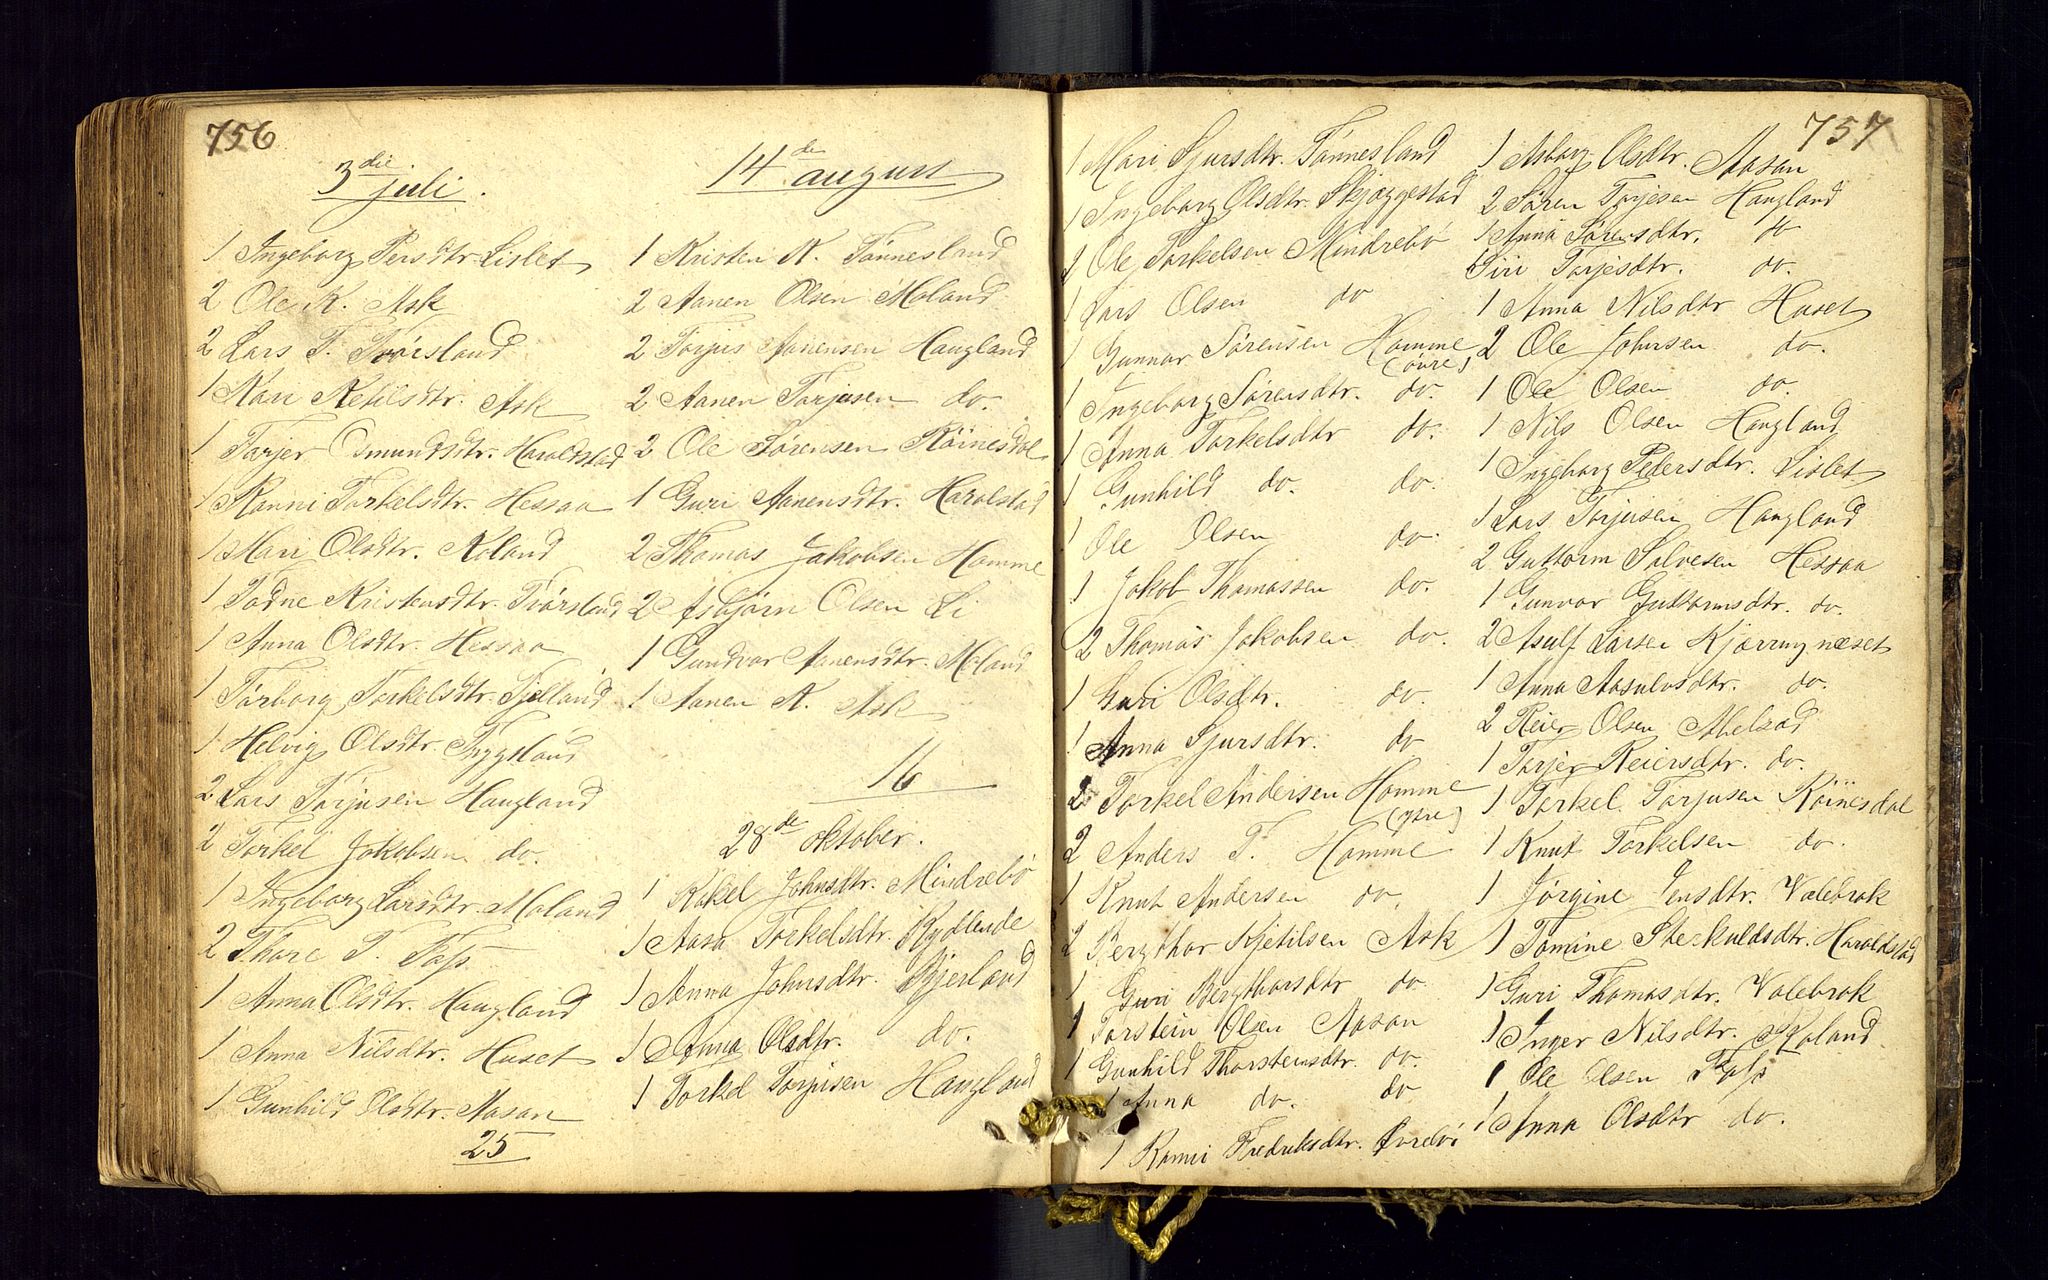 756
3die juli.
1 Ingeborg Persdtr. Lislet
2 Ole K. Ask
2 Lars T. Tvörsland
1 Kari Ketilsdtr. Ask
1 Tarjer Osmundsdtr. Haraldstad
1 Ranni Torkelsdtr. Hessaa
1 Mari Olsdtr. Noland
1 Todne Kristensdtr. Tvörsland
1 Anna Olsdtr. Hessaa
1 Torborg Torkelsdtr. Fjelland
1 Helvig Olsdtr. Trygsland
2 Lars Torjusen Haugland
2 Torkel Jakobsen do.
1 Ingeborg Larsdtr. Moland
2 Thore T. Foss
1 Anna Olsdtr. Haugland
1 Anna Nilsdtr. Huset
1 Gunhild Olsdtr. Aasan
25
14de august
1 Kristen K. Tönnesland
2 Aanen Olsen Moland
2 Torjus Aanensen Haugland
2 Aanen Torjusen do.
2 Ole Sørensen Röinesdal
1 Guri Aanensdtr. Haralstad
2 Thomas Jakobsen Homme
2 Asbjörn Olsen Li
1 Gundvor Aanensdtr. Moland
1 Aanen K. Ask
16
28de oktober.
1 Rakel Johnsdtr. Mindrebö
1 Aasa Torkelsdtr. Rydlende
1 Anna Johnsdtr. Bjerland
1 Anna Olsdtr. do.
1 Torkel Torjusen Haugland
757
1 Mari Sjursdtr. Tönnesland
1 Ingeborg Olsdtr. Skjæggestad
2 Ole Torkelsen Mindrebö
1 Lars Olsen do
1 Gunnar Sørensen Homme
(övre)
1 Ingeborg Sørensdtr. do.
1 Anna Torkelsdtr do.
1 Gunhild do. do.
1 Ole Olsen do.
1 Jakob Thomassen do.
2 Thomas Jakobsen do.
1 Guri Olsdtr. do.
1 Anna Sjursdtr. do
2 Torkel Andersen Homme
(ytre)
2 Anders T. Homme
1 Knut Andersen do.
2 Bergthor Kjetilsen Ask
1 Guri Bergthorsdtr do
1 Torstein Olsen Aasan
1 Gunhild Thorsteinsdtr. do.
1 Anna do. do
1 Ranni Fredriksdtr. Øvrebö
1 Asborg Olsdtr. Aasan
2 Sören Torjesen Haugland
1 Anna Sörensdtr. do
1 Siri Torjesdtr. do.
1 Anna Nilsdtr Huset
2 Ole Johnsen do.
1 Ole Olsen do.
1 Nils Olsen Haugland
1 Ingeborg Pedersdtr. Lislet
1 Lars Torjusen Haugland
2 Guttorm Salvesen Hessaa
1 Gunvor Guttormsdtr. do.
2 Asulf Larsen Kjærringnæset
1 Anna Aasulvsdtr. do.
2 Reier Olsen Abelsæd
1 Torjer Reiersdtr. do.
1 Torkel Torjusen Röinesdal
1 Knut Torkelsen do.
1 Jørgine Jensdtr. Valebrok
1 Tomine Sterkuldsdtr. Haraldstad
1 Guri Thomasdtr. Valebrok
1 Inger Nilsdtr. Noland.
1 Ole Olsen Foss
1 Anna Olsdtr do.